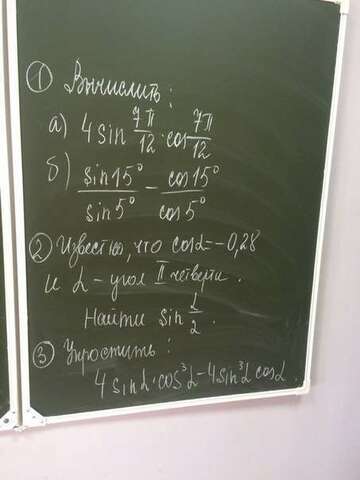 ① Вычислить:
а) 4 sin 7π/12 · cos 7π/12
б) sin15°/sin5° − cos15°/cos5°
② Известно, что cosα=−0,28
и α − угол II четверти.
Найти sin α/2.
③ Упростить:
4 sinα·cos³α−4sin³α cosα.